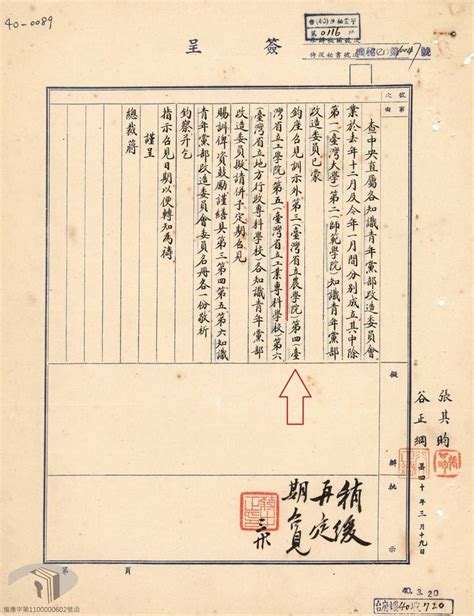 40-0089
簽呈
查中央直屬各知識青年黨部改造委員會
業於去年十二月及今年一月間分別成立其中除
第一(臺灣大學)第二(師範學院)知識青年黨部
改造委員已蒙
鈞座召見訓示外第三(臺灣省立農學院)第四(臺
灣省立工學院)第五(臺灣省立工業專科學校)第六
(臺灣省立地方行政專科學校)各知識青年黨部
改造委員擬請併予定期召見
賜訓俾資鼓勵謹繕具第三第四第五第六知識
青年黨部改造委員會委員名冊各一份敬祈
鈞察并乞
指示召見日期以便轉知為禱
謹呈
總裁蔣
張其昀
谷正綱
四十年三月十九日
擬辦
批示
稍後
再定
期召見
第 頁
40.3.20
檔應字第1100000602號函